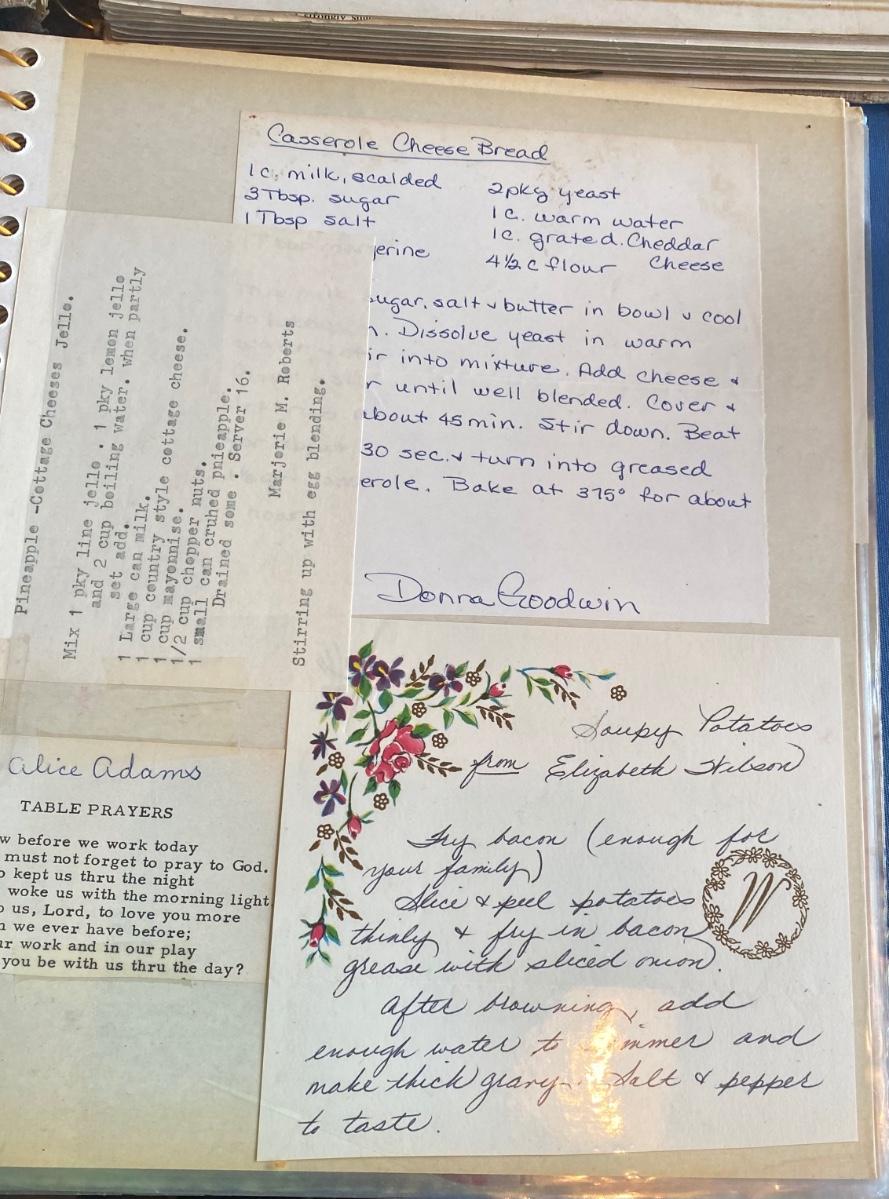 Casserole Cheese Bread
1 c. milk, scalded
3 Tbsp. sugar
1 Tbsp salt
erine
2 pkg yeast
1 c. warm water
1 c. grated. Cheddar
Cheese
4½ c flour
ugar, salt & butter in bowl & cool
. Dissolve yeast in warm
ir into mixture. Add cheese &
r until well blended. Cover &
about 45 min. Stir down. Beat
30 sec. & turn into greased
erole. Bake at 375° for about
Donna Goodwin
Pineapple -Cottage Cheeses Jello.
Mix 1 pky line jello . 1 pky lemon jello
and 2 cup boiling water. when partly
set add.
1 Large can milk.
1 cup country style cottage cheese.
1 cup mayonnise.
1/2 cup chopper nuts.
1 small can cruhed pnieapple.
Drained some . Server 16.
Marjorie M. Roberts
Stirring up with egg blending.
Alice Adams
TABLE PRAYERS
w before we work today
must not forget to pray to God.
o kept us thru the night
woke us with the morning light
p us, Lord, to love you more
n we ever have before;
ur work and in our play
you be with us thru the day?
Soupy Potatoes
from Elizabeth Wilson
Fry bacon (enough for
your family)
Slice & peel potatoes
thinly & fry in bacon
grease with sliced onion.
After browning, add
enough water to simmer and
make thick gravy. Salt & pepper
to taste.
W